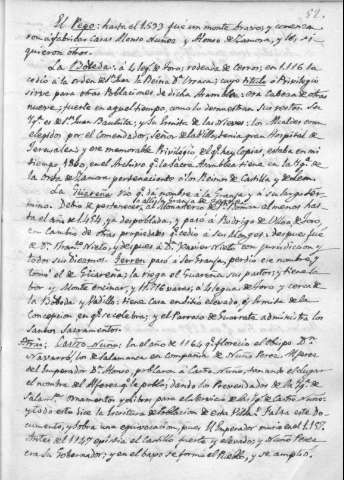 52.
El Pego: hasta el 1.593 fué un monte bravos, y comenza-
ron a fabricar casas Alonso Nuñez y Alonso de Zamora, y les si-
guieron otros.
La Bóbeda: à 4 leg.s de Toro, rodeada de cerros; en 1.116 la
cedió à la orden de S.n Juan la Reina D.a Urraca; cuyo título ò Privilegio
sirve para otras Poblaciones de dicha Asamblea: era Cabeza de otras
nueve; fuerte en aquel tiempo, como lo demuestran sus restos. La
Yg.a es de S.n Juan Bautista, y la hermita de las Nieves: los Alcaldes eran
elegidos por el Comendador, Señor de la Villa; tenía gran Hospital de
Jerusalen; y ese memorable Privilegio q.e hay copias, estaba en mi
tiempo 1.860, en el Archivo q.e la Sacra Asamblea tiene en la Yg.a de
la Orta de Zamora perteneciendo à los Reinos de Castilla y de Leon.
La Guareña rio q.e dá nombre à la Granja, y à su largo ter-
mino. Debió de pertenecer al Monasterio de al menos has-
ta el año de 1.454, ya despoblada, y pasó à Rodrigo de Ulloa, de Toro,
con cambio de otras propiedades q.e cedió à sus Monges, despues fué
de D.n Fran.co Nieto, y despues à D.n Javier Nieto con jurisdiccion y
todos sus diezmos. Torre: pasó à ser Granja, perdió ese nombre, y
tomó el de Guareña; la riega el Guareña sus pastos; y tiene la-
bor y Monte encinar, y 14.716 varas; à 4 leguas de Toro, y cerca de
la Bóbeda y Vadillo; tiene Casa en sitio elevado, y hermita de la
Concepcion en q.e se celebra; y el Parroco de Guarrate administra los
Santos Sacramentos.
Castro Nuño: la el año de 1164 q.e florecia el Obispo D.n
Navarro, lo de Salamanca en compañia de Nuño Perez Alferez
del Emperador D.n Alonso, poblaron à Castro Nuño, tomando el lugar
el nombre del Alferez q.e le pobló; dando los Proveedores de la Yg.a de
Salam.ca Ornamentos y libros para la fabrica de la Yg.a de Castro Nuño:
y todo esto dice la escritura de Poblacion de esta Villa. Falta este do-
cumento, y sobra una equivocacion, pues el Emperador murio en el 1.157.
Antes del 1147 existia el Castillo fuerte y elevado, y Nuño Perez
era su Gobernador; y en el bajo se formó el Pueblo, y se amplió.